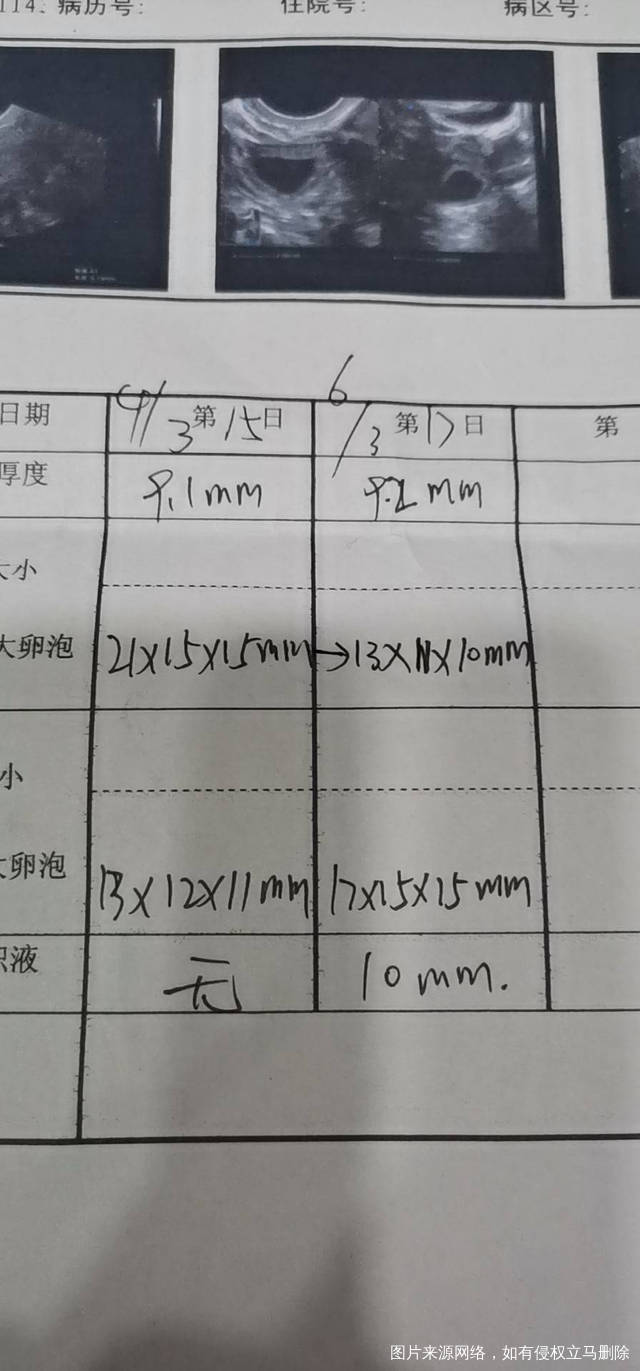 114. 病历号: 住院号: 病区号:
日期 4/3 第15日 6/3 第17日 第
厚度 9.1mm 9.2mm
大小
大卵泡 21x15x15mm →13x11x10mm
小
大卵泡 13x12x11mm 17x15x15mm
积液 无 10mm.
图片来源网络，如有侵权立马删除